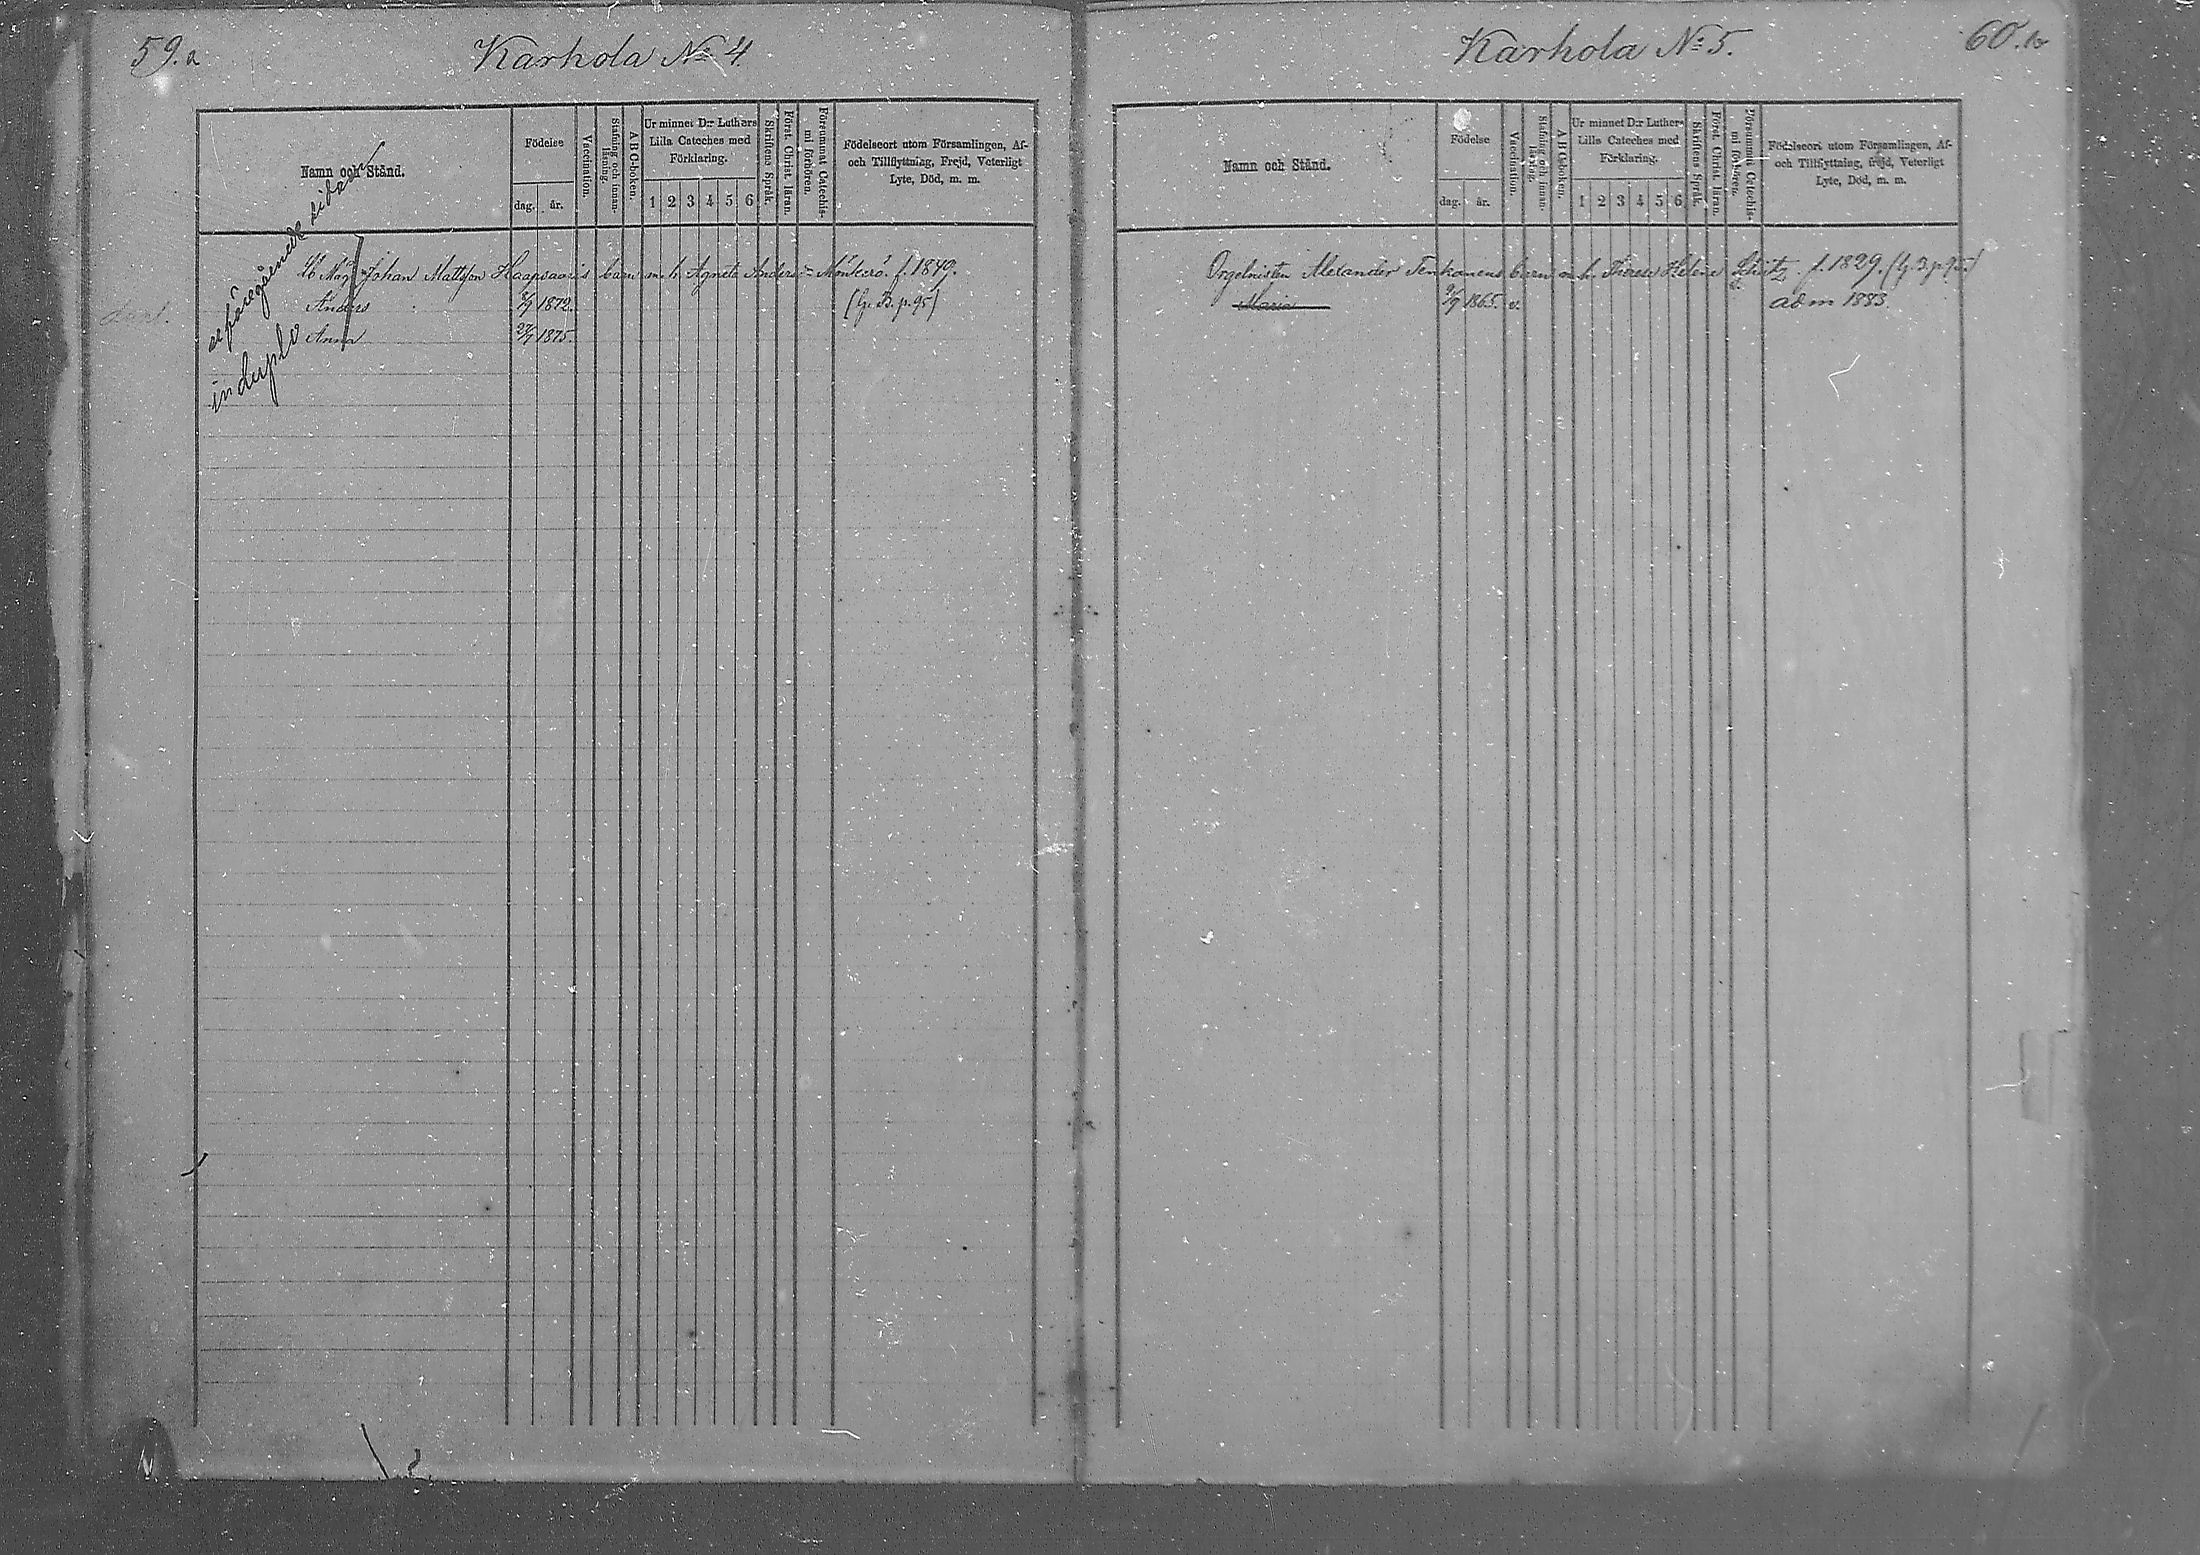 59.a
Karhola No 4.
Namn och Stånd.
Födelse
dag. år.
Vaccination.
Stafning och innan-
läsning.
ABC-boken.
Ur minnet D:r Luthers
Lilla Cateches med
Förklaring.
1 2 3 4 5 6
Skriftens Språk.
Först. Christ. läran.
Försummat Catechis-
mi förhören.
Födelseort utom Församlingen, Af-
och Tillflyttning, Frejd, Veterligt
Lyte, Död, m. m.
föregående sidan
in duplo
Måg Johan Mattsson Haapsaari's barn m. h. Agneta Anders f. 1849.
Anders 1872. (G. B. p. 95)
Anna 1875.
60.
Karhola No 5.
Namn och Stånd.
Födelse
dag. år.
Vaccination.
Stafning och innan-
läsning.
ABC-boken.
Ur minnet D:r Luthers
Lilla Cateches med
Förklaring.
1 2 3 4 5 6
Skriftens Språk.
Först. Christ. läran.
Försummat Catechis-
mi förhören.
Födelseort utom Församlingen, Af-
och Tillflyttning, frejd, Veterligt
Lyte, Död, m. m.
Orgelnisten Alexander Tenkanens barn m. h. Theresa Helena f. 1829. (G. B. p. 95)
Maria 1865. v. adm 1883.